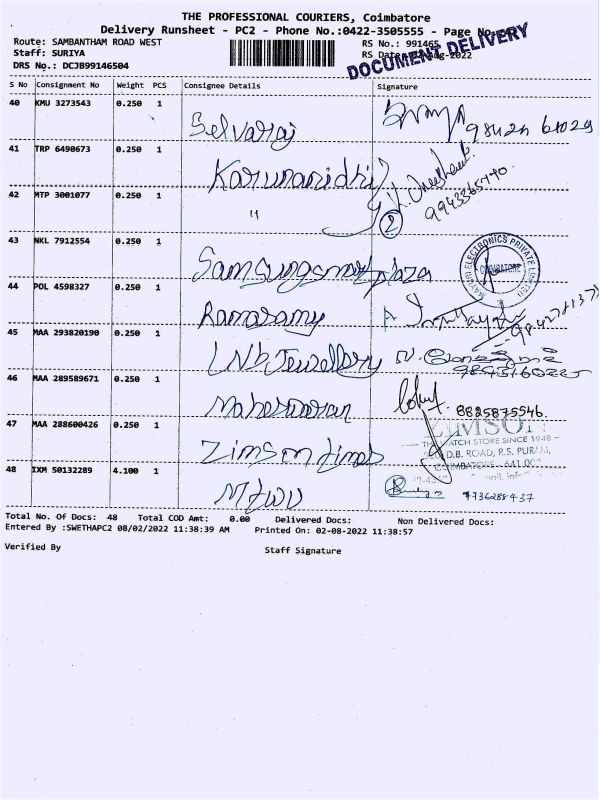 THE PROFESSIONAL COURIERS, Coimbatore
Delivery Runsheet - PC2 - Phone No.:0422-3505555 - Page No.
Route: SAMBANTHAM ROAD WEST
RS No.: 991465
Staff: SURIYA
RS Date Aug-2022
DOCUMENT DELIVERY
DRS No.: DCJB99146504
S No Consignment No Weight PCS Consignee Details Signature
40 KMU 3273543 0.250 1
Selvaraj
41 TRP 6490673 0.250 1
Karunanidhi
42 MTP 3001077 0.250 1
"
2
43 NKL 7912554 0.250 1
Samsungsmartplaza
MAYURI ELECTRONICS PRIVATE LIMITED
COIMBATORE
44 POL 4598327 0.250 1
Ramasamy
45 MAA 293820190 0.250 1
LNB Jewellery
46 MAA 289589671 0.250 1
Maheswaran
8825875546
47 MAA 288600426 0.250 1
Zimson times
ZIMSON
THE WATCH STORE SINCE 1948
D.B. ROAD, R.S. PURAM,
COIMBATORE - 641 002
48 IXM 50132289 4.100 1
9736288437
Total No. Of Docs: 48 Total COD Amt: 0.00 Delivered Docs: Non Delivered Docs:
Entered By :SWETHAPC2 08/02/2022 11:38:39 AM Printed On: 02-08-2022 11:38:57
Verified By
Staff Signature